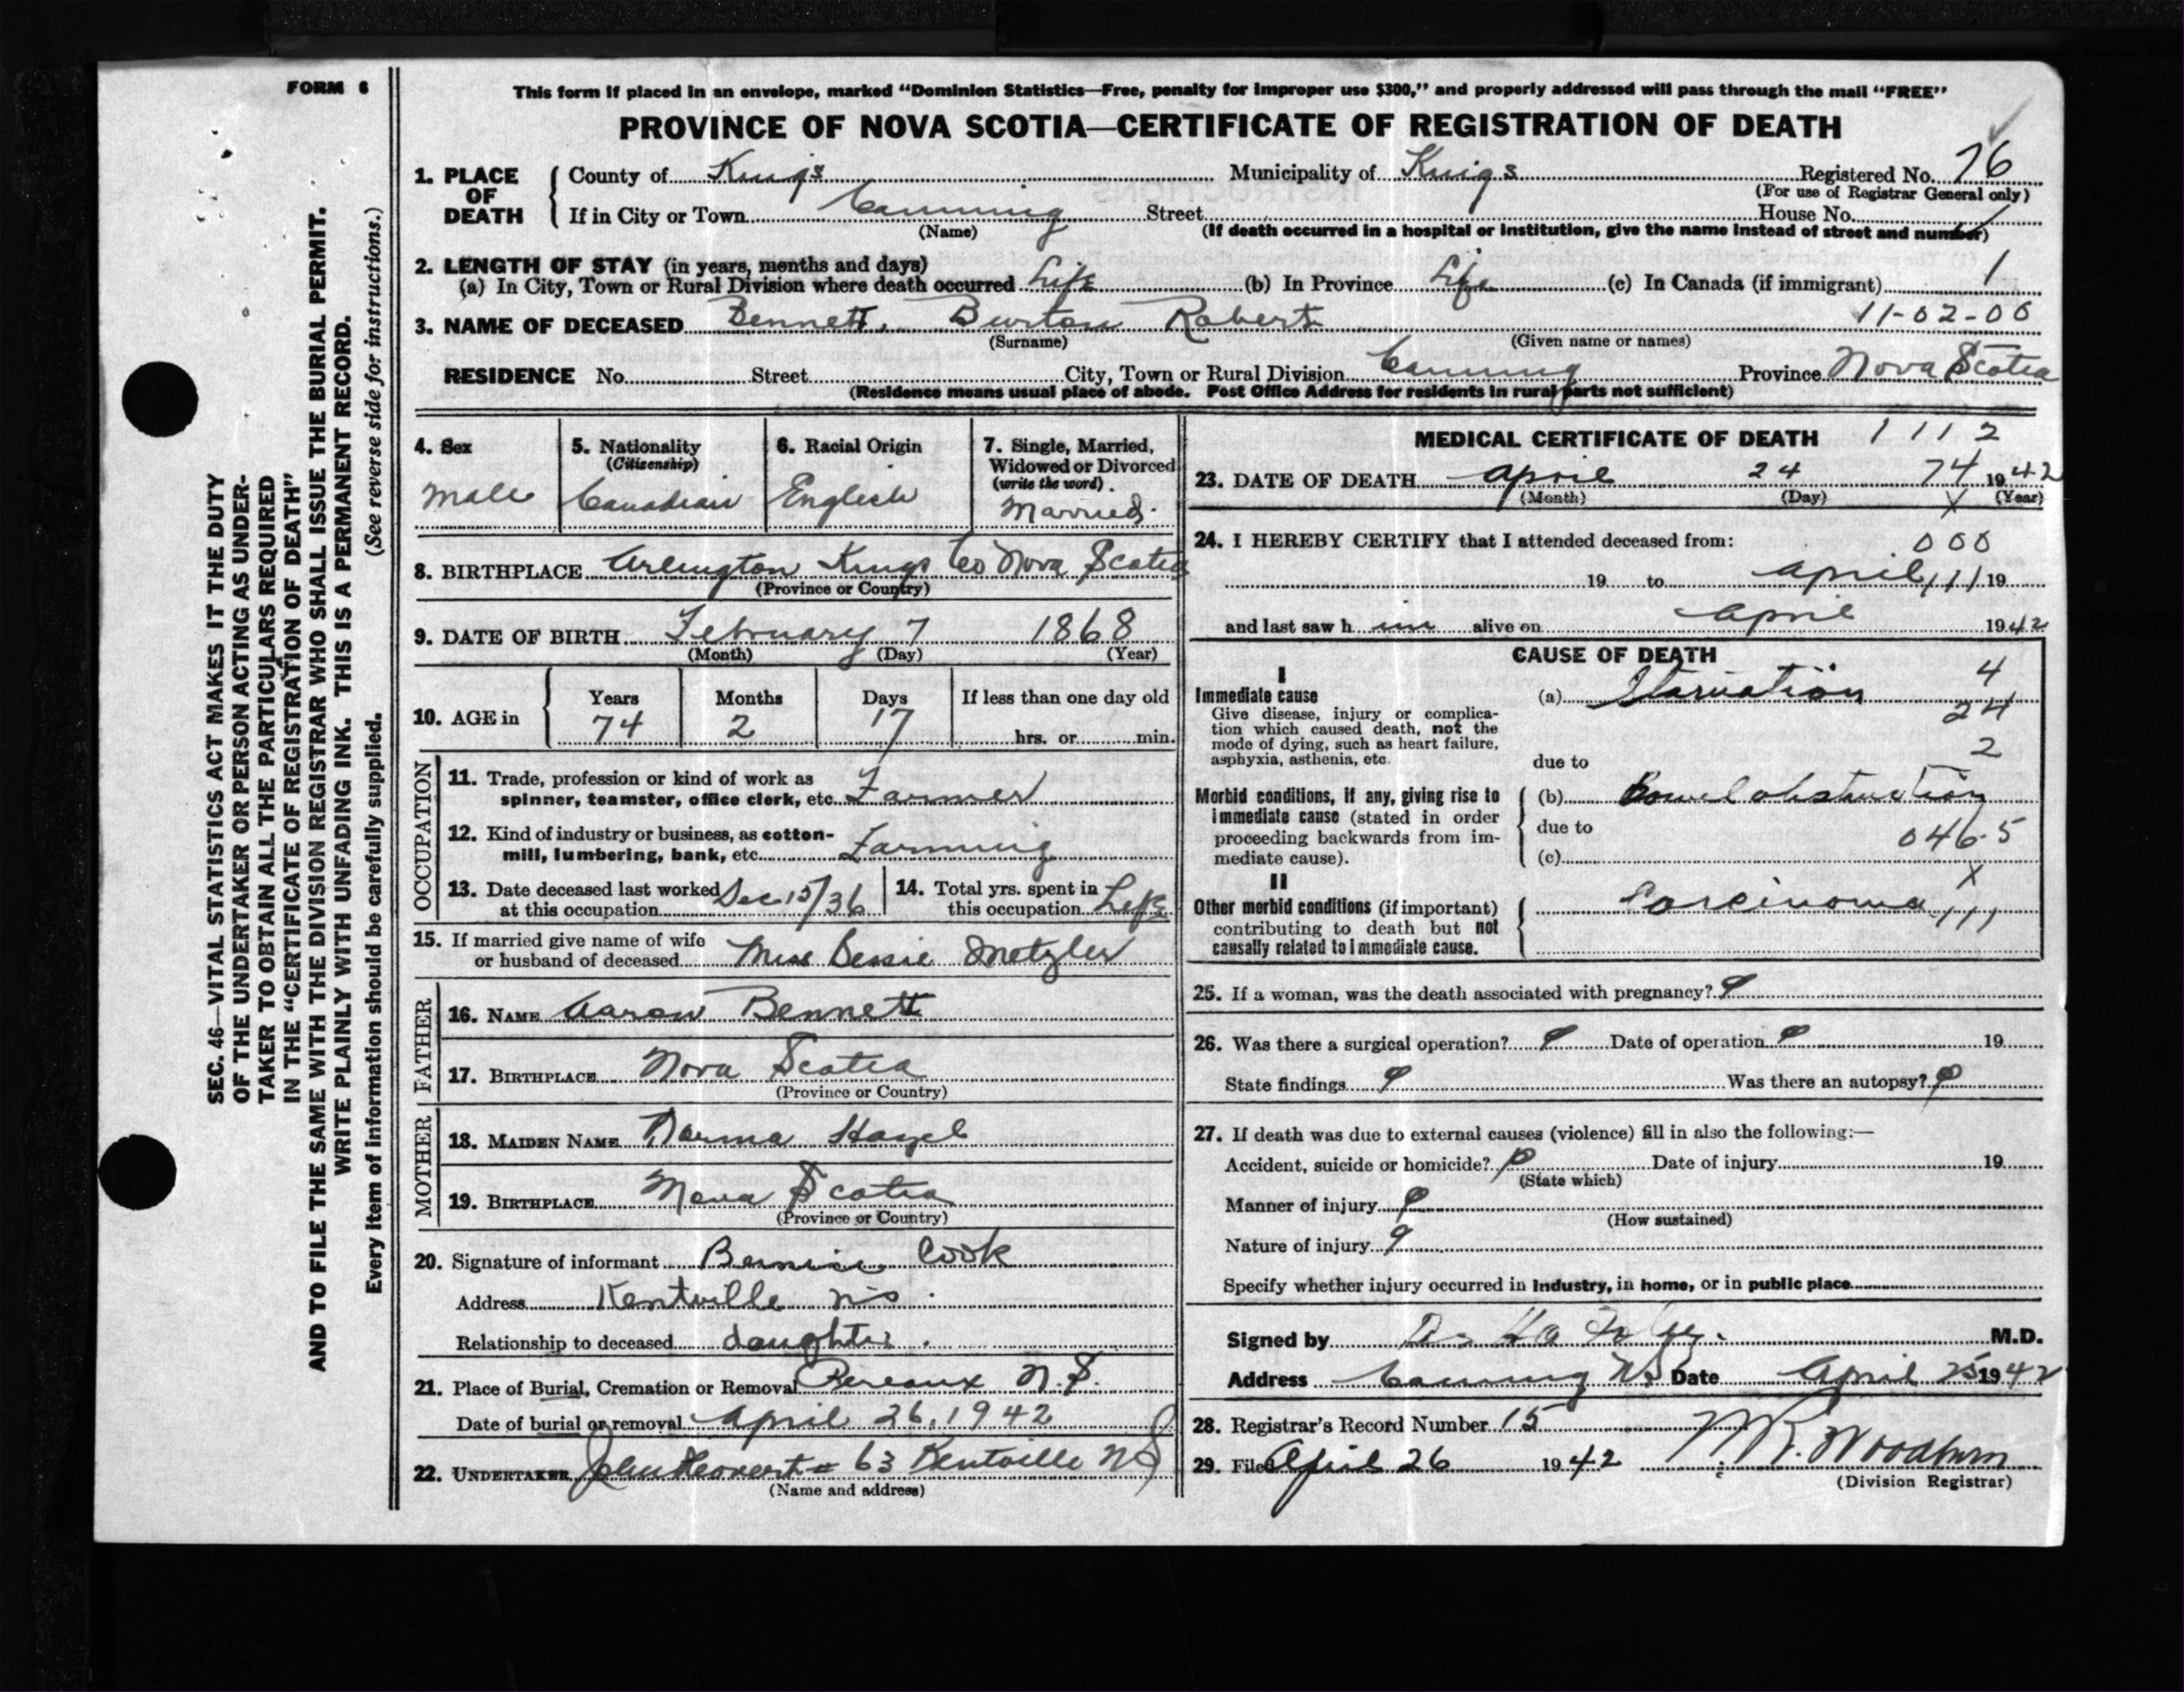 FORM 6
This form if placed in an envelope, marked “Dominion Statistics—Free, penalty for improper use $300,” and properly addressed will pass through the mail “FREE”
PROVINCE OF NOVA SCOTIA—CERTIFICATE OF REGISTRATION OF DEATH
SEC. 46—VITAL STATISTICS ACT MAKES IT THE DUTY
OF THE UNDERTAKER OR PERSON ACTING AS UNDER-
TAKER TO OBTAIN ALL THE PARTICULARS REQUIRED
IN THE “CERTIFICATE OF REGISTRATION OF DEATH”
AND TO FILE THE SAME WITH THE DIVISION REGISTRAR WHO SHALL ISSUE THE BURIAL PERMIT.
WRITE PLAINLY WITH UNFADING INK. THIS IS A PERMANENT RECORD.
Every item of information should be carefully supplied. (See reverse side for instructions.)
1. PLACE OF DEATH
County of Kings Municipality of Kings Registered No. 76
(For use of Registrar General only)
If in City or Town Canning Street House No.
(Name) (If death occurred in a hospital or institution, give the name instead of street and number)
2. LENGTH OF STAY (in years, months and days)
(a) In City, Town or Rural Division where death occurred Life (b) In Province Life (c) In Canada (if immigrant) 1
3. NAME OF DECEASED Bennett, Burton Robert 11-02-06
(Surname) (Given name or names)
RESIDENCE No. Street City, Town or Rural Division Canning Province Nova Scotia
(Residence means usual place of abode. Post Office Address for residents in rural parts not sufficient)
4. Sex
Male
5. Nationality
(Citizenship)
Canadian
6. Racial Origin
English
7. Single, Married,
Widowed or Divorced
(write the word)
Married
8. BIRTHPLACE Arlington Kings Co Nova Scotia
(Province or Country)
9. DATE OF BIRTH February 7 1868
(Month) (Day) (Year)
10. AGE in
Years Months Days If less than one day old
74 2 17 hrs. or min.
OCCUPATION
11. Trade, profession or kind of work as
spinner, teamster, office clerk, etc. Farmer
12. Kind of industry or business, as cotton-
mill, lumbering, bank, etc. Farming
13. Date deceased last worked
at this occupation Dec 15/36
14. Total yrs. spent in
this occupation Life
15. If married give name of wife
or husband of deceased Miss Bessie Metzler
FATHER
16. NAME Aaron Bennett
17. BIRTHPLACE Nova Scotia
(Province or Country)
MOTHER
18. MAIDEN NAME
19. BIRTHPLACE Nova Scotia
(Province or Country)
20. Signature of informant Bernice Cook
Address Kentville NS.
Relationship to deceased daughter.
21. Place of Burial, Cremation or Removal Pereaux N.S.
Date of burial or removal April 26, 1942
22. UNDERTAKER 63 Kentville NS
(Name and address)
MEDICAL CERTIFICATE OF DEATH 1112
23. DATE OF DEATH April 24 74 1942
(Month) (Day) (Year)
X
24. I HEREBY CERTIFY that I attended deceased from: 000
19 to April 111 19
and last saw h im alive on April 1942
CAUSE OF DEATH
I
Immediate cause
Give disease, injury or complica-
tion which caused death, not the
mode of dying, such as heart failure,
asphyxia, asthenia, etc.
(a) Starvation 4
24
2
due to
Morbid conditions, if any, giving rise to
immediate cause (stated in order
proceeding backwards from im-
mediate cause).
(b) Bowel obstruction
due to
046-5
(c)
X
II
Other morbid conditions (if important)
contributing to death but not
causally related to immediate cause.
Carcinoma 111
25. If a woman, was the death associated with pregnancy?
26. Was there a surgical operation? Date of operation 19
State findings Was there an autopsy?
27. If death was due to external causes (violence) fill in also the following:—
Accident, suicide or homicide? Date of injury 19
(State which)
Manner of injury
(How sustained)
Nature of injury
Specify whether injury occurred in industry, in home, or in public place
Signed by M.D.
Address Canning NS Date April 25 1942
28. Registrar’s Record Number 15
29. Filed April 26 1942 Woodburn
(Division Registrar)